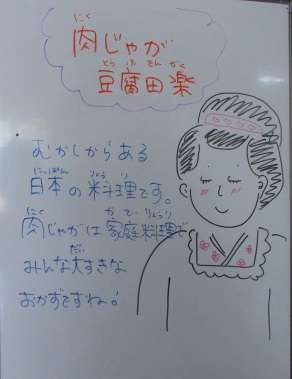 にく
肉じゃが
とうふでんがく
豆腐田楽
むかしからある
にっぽん りょうり
日本の料理です。
にく かてい りょうり
肉じゃがは家庭料理で
だい
みんな大すきな
おかずですね!